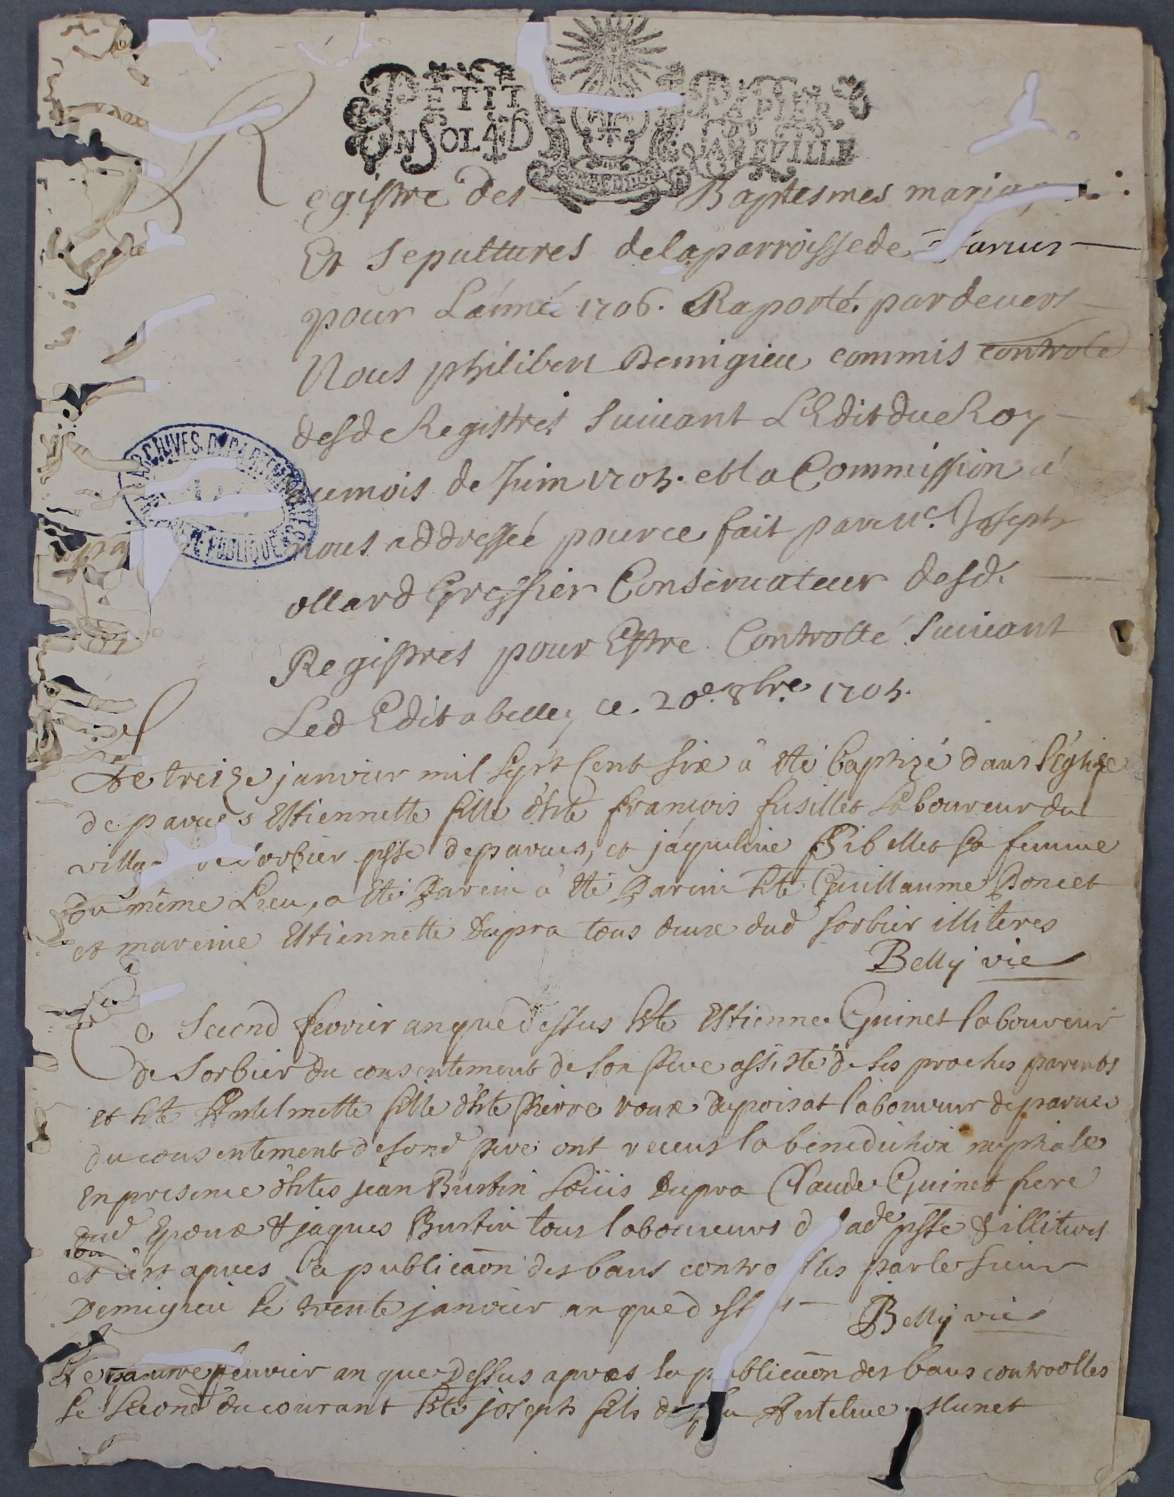 PETIT PAPIER
UN SOL 4 D
Registre des Baptesmes
Et Sepultures de la parroisse de
pour Lánnée 1706. Raporté pardevers
Nous philibert Demigieu commis controle
desd Registres Suivant L'Edit du Roy
du mois de Juin 1705. et la Commission á
nous addressée pour ce fait par Mc. Joseph
ollard Greffier Conservateur desd.
Registres pour Estre Controllé Suivant
Led Edit a belley ce. 20e. 8bre 1705.
ARCHIVES DEPARTEMENTALES
Le treize janvier mil sept Cent six à été baptizé dans l'église
de parves Estiennette fille d'hte françois fusillet Laboureur du
sorbier psse de parves, et jáqueline Sibellet sa femme
du même Lieu, a été Parein à été Parein hte Guillaume Poncet
et mareine Estiennette Dupra tous deux dud sorbier illiteres
Belly vic
Le Second fevrier an que dessus hte Estienne Guinet laboureur
de Sorbier du consentement de son Pere assisté de ses proches parents
et hte Antelmette fille d'hte Pierre roux laboureur de parves
du consentement de sond Pere ont receus la benediction nuptiale
en presence d'htes jean Burtin Loüis Dupra Claude Guinet frere
dud Epoux & jaques Burtin tous laboureurs psse & illiteres
et c'est apres la publicaon des bans par le sieur
Demigieu le trente janvier an que Belly vic
Le fevrier an que Dessus apres la publicaon des bans controolles
le Second du courant hte joseph fils de Antelme Munet